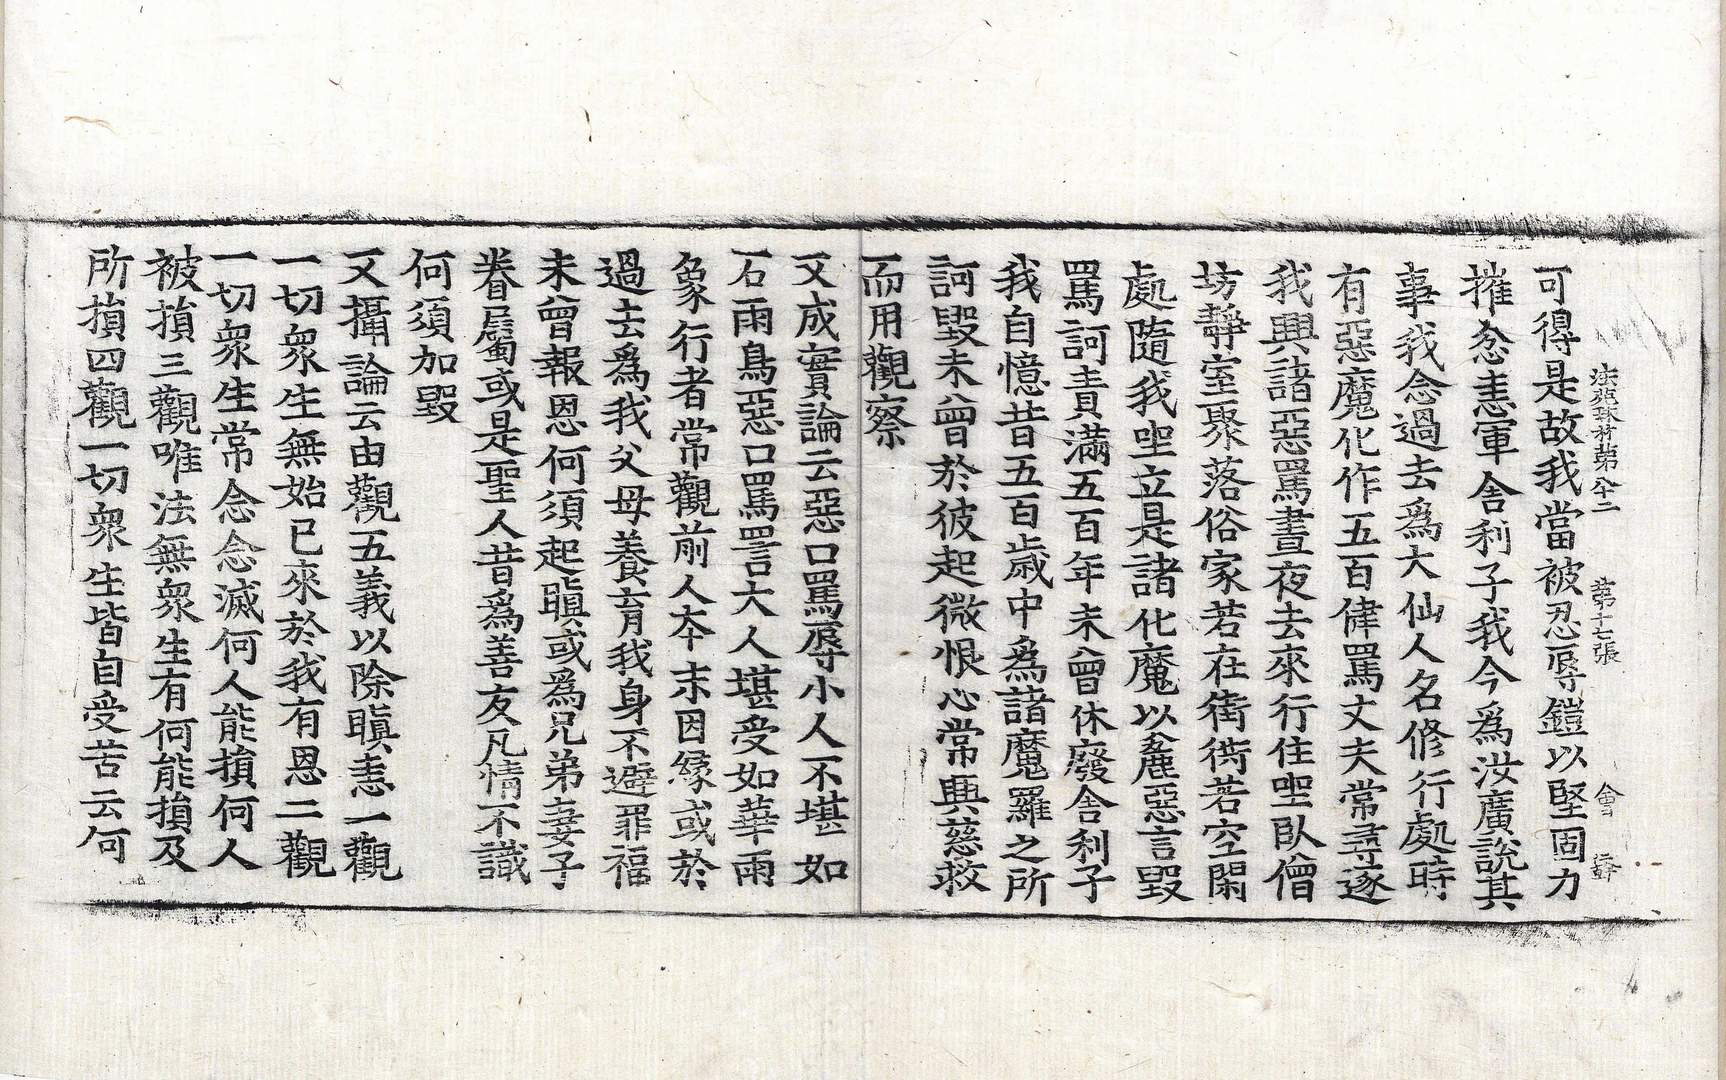 法苑珠林第八十二 第十七張 會
可得是故我當被忍辱鎧以堅固力
摧忿恚軍舍利子我今爲汝廣說其
事我念過去爲大仙人名修行處時
有惡魔化作五百健罵丈夫常尋逐
我興諸惡罵晝夜去來行住坐臥僧
坊靜室聚落俗家若在街衖若空閑
處隨我坐立是諸化魔以麁惡言毀
罵訶責滿五百年未曾休廢舍利子
我自憶昔五百歲中爲諸魔羅之所
訶毀未曾於彼起微恨心常興慈救
而用觀察
又成實論云惡口罵辱小人不堪如
石雨鳥惡口罵詈大人堪受如華雨
象行者常觀前人本末因緣或於
過去爲我父母養育我身不避罪福
未曾報恩何須起瞋或爲兄弟妻子
眷屬或是聖人昔爲善友凡情不識
何須加毀
又攝論云由觀五義以除瞋恚一觀
一切衆生無始已來於我有恩二觀
一切衆生常念念滅何人能損何人
被損三觀唯法無衆生有何能損及
所損四觀一切衆生皆自受苦云何